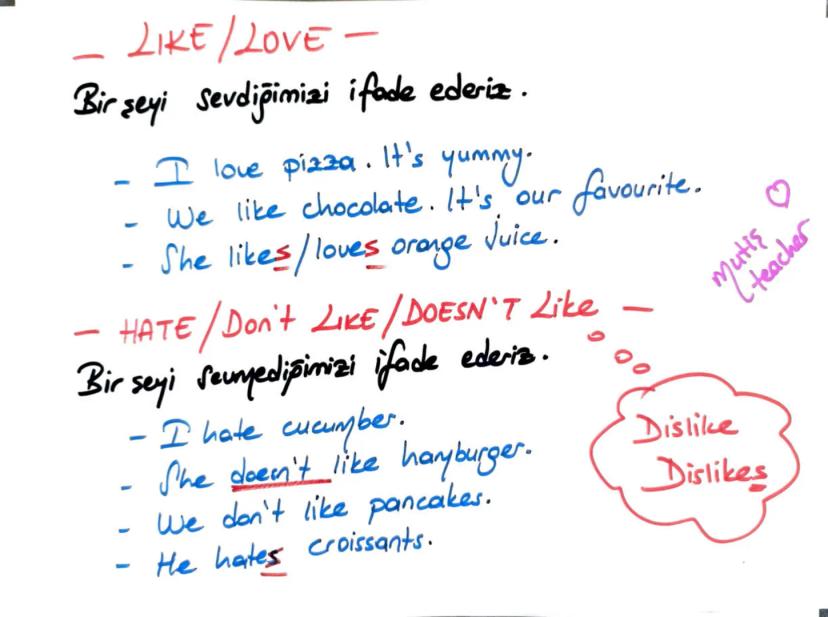 - LIKE/LOVE -
Bir şeyi sevdiğimizi ifade ederiz.
- I love pizza. It's yummy.
- We like chocolate. It's our favourite.
- She likes/loves orange juice.
mutiş
teacher
- HATE/Don't LIKE/DOESN'T Like -
Bir şeyi sevmediğimizi ifade ederiz.
- I hate cucumber.
- She doesn't like hamburger.
- We don't like pancakes.
- He hates croissants.
Dislike
Dislikes